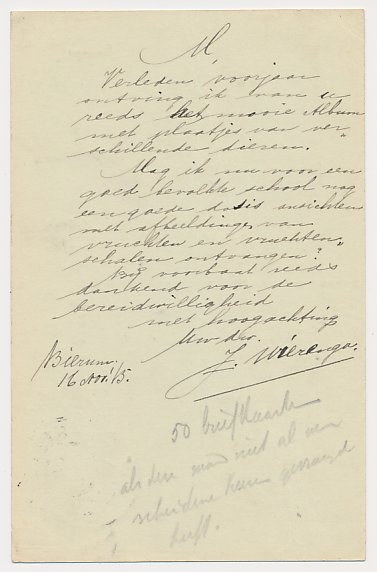 M,
Verleden voorjaar
ontving ik van u
reeds het mooie Album
met plaatjes van ver-
schillende dieren.
Mag ik nu voor een
goed bevolkte school nog
een goede dosis ansichten
met afbeeldingen van
vruchten en vruchten
schalen ontvangen?
Bij voorbaat reeds
dankend voor de
bereidwilligheid
met hoogachting
Uwdw.
J. Wierenga.
Bierum,
16 Nov. '15.
50 briefkaarten
als deze man niet al ver
scheidene keeren gevraagd
heeft.